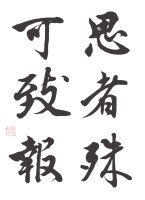 思者殊
可致報